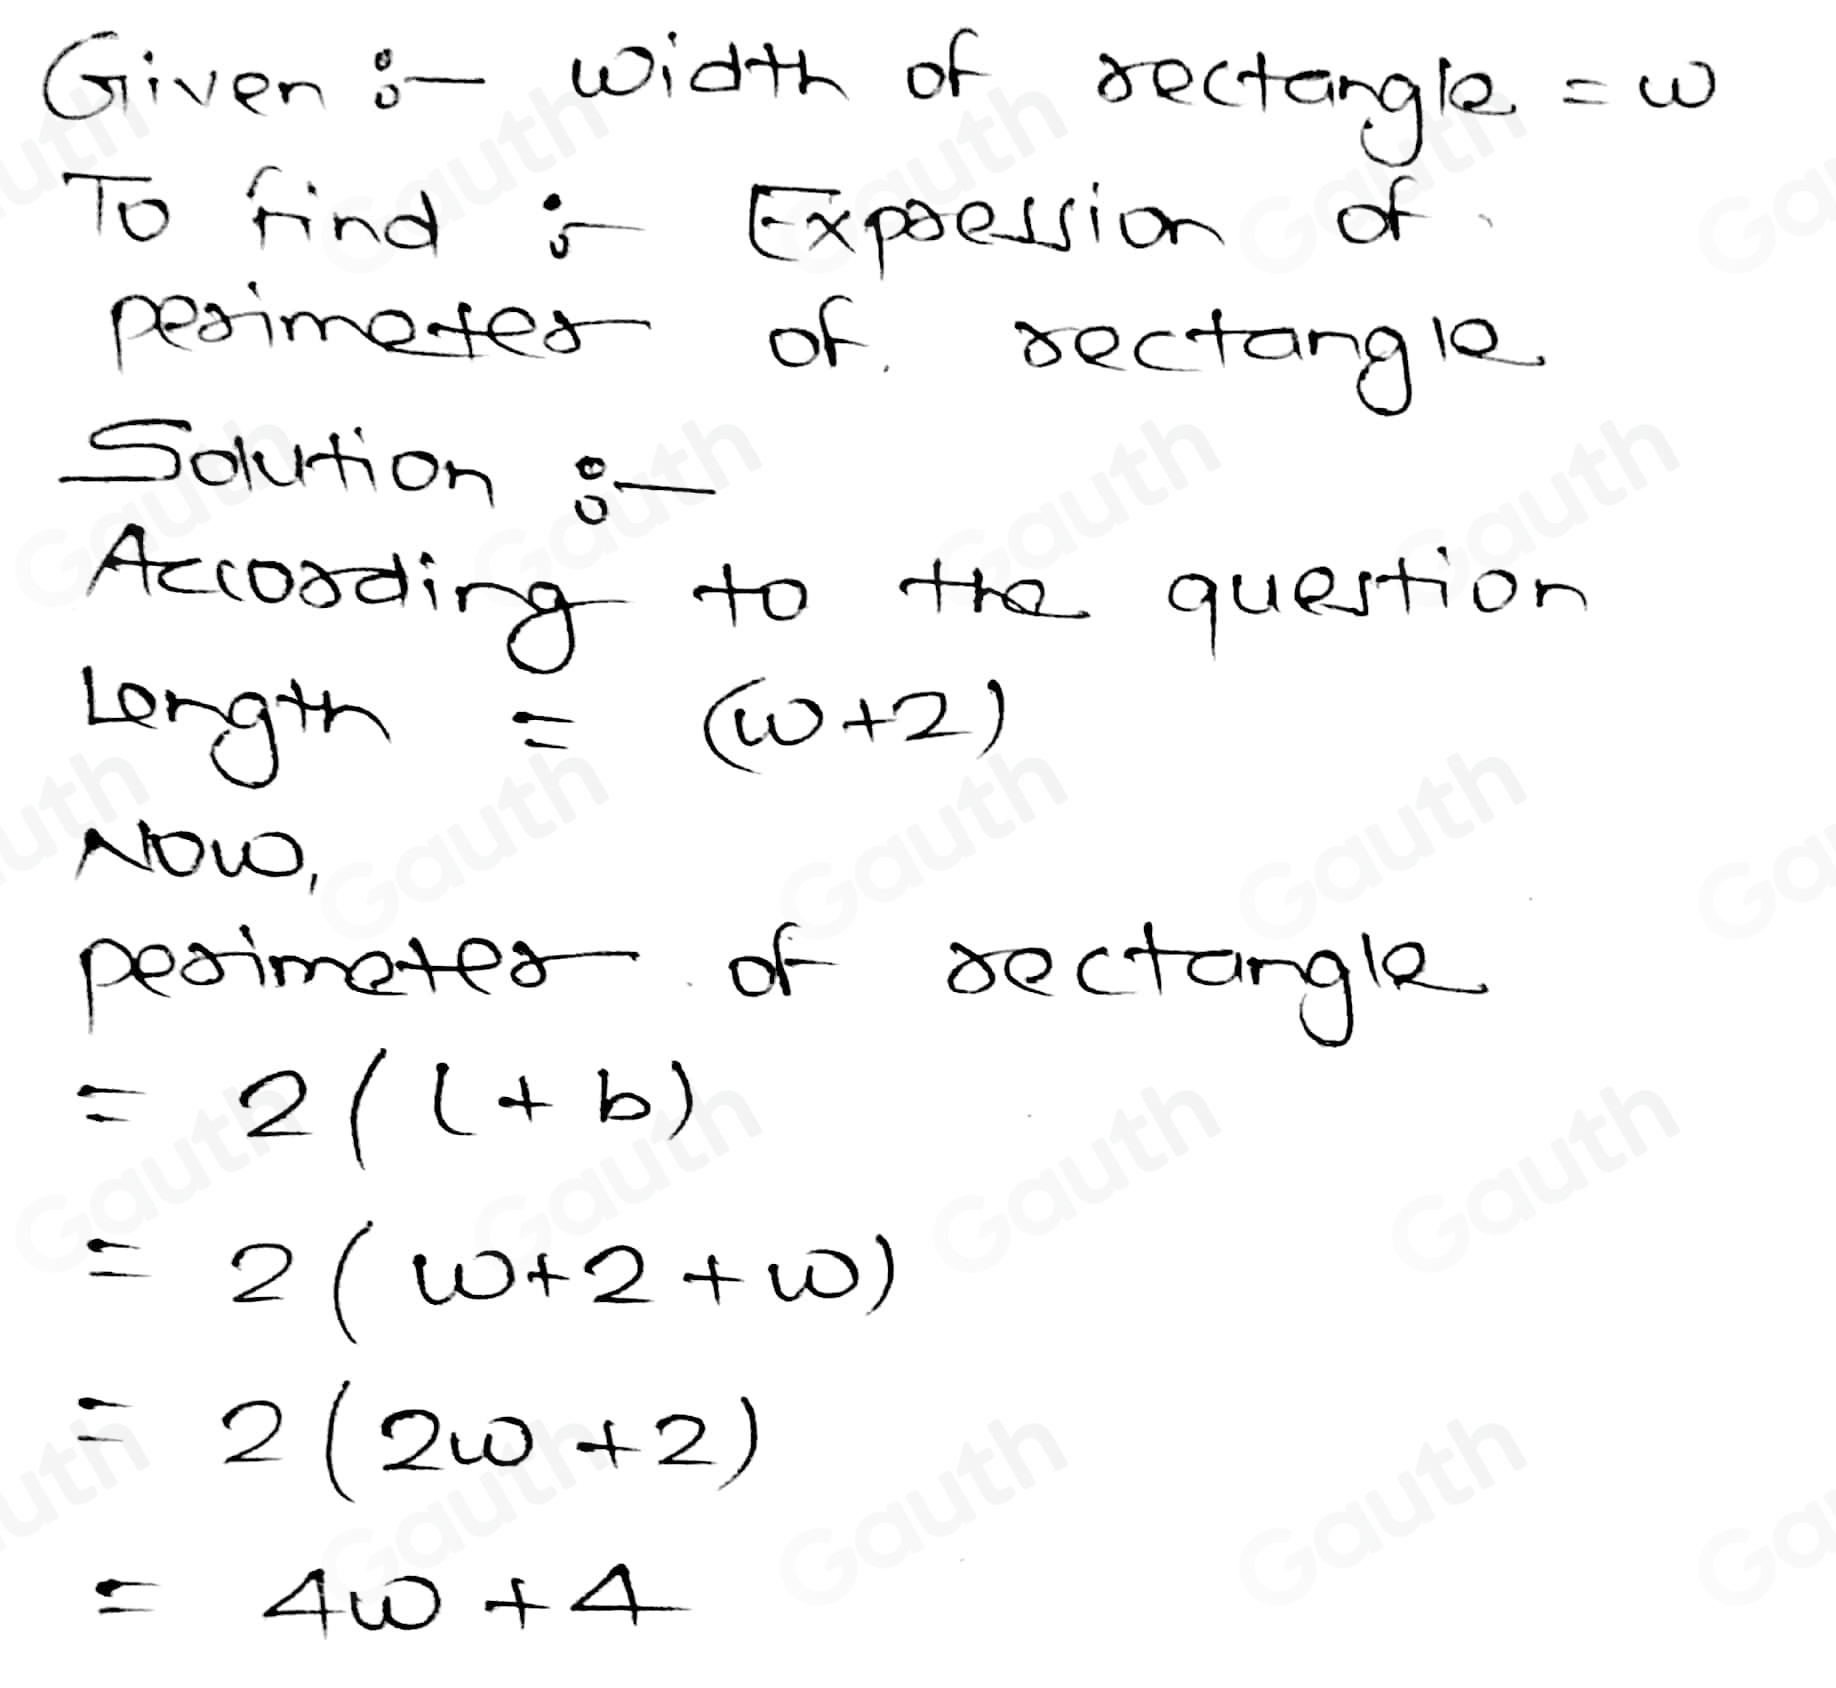 Given :- width of rectangle = w
To find :- Expression of
perimeter of rectangle
Solution :-
According to the question
Length = (w+2)
Now,
perimeter of rectangle
= 2(l+b)
= 2(w+2+w)
= 2(2w+2)
= 4w+4